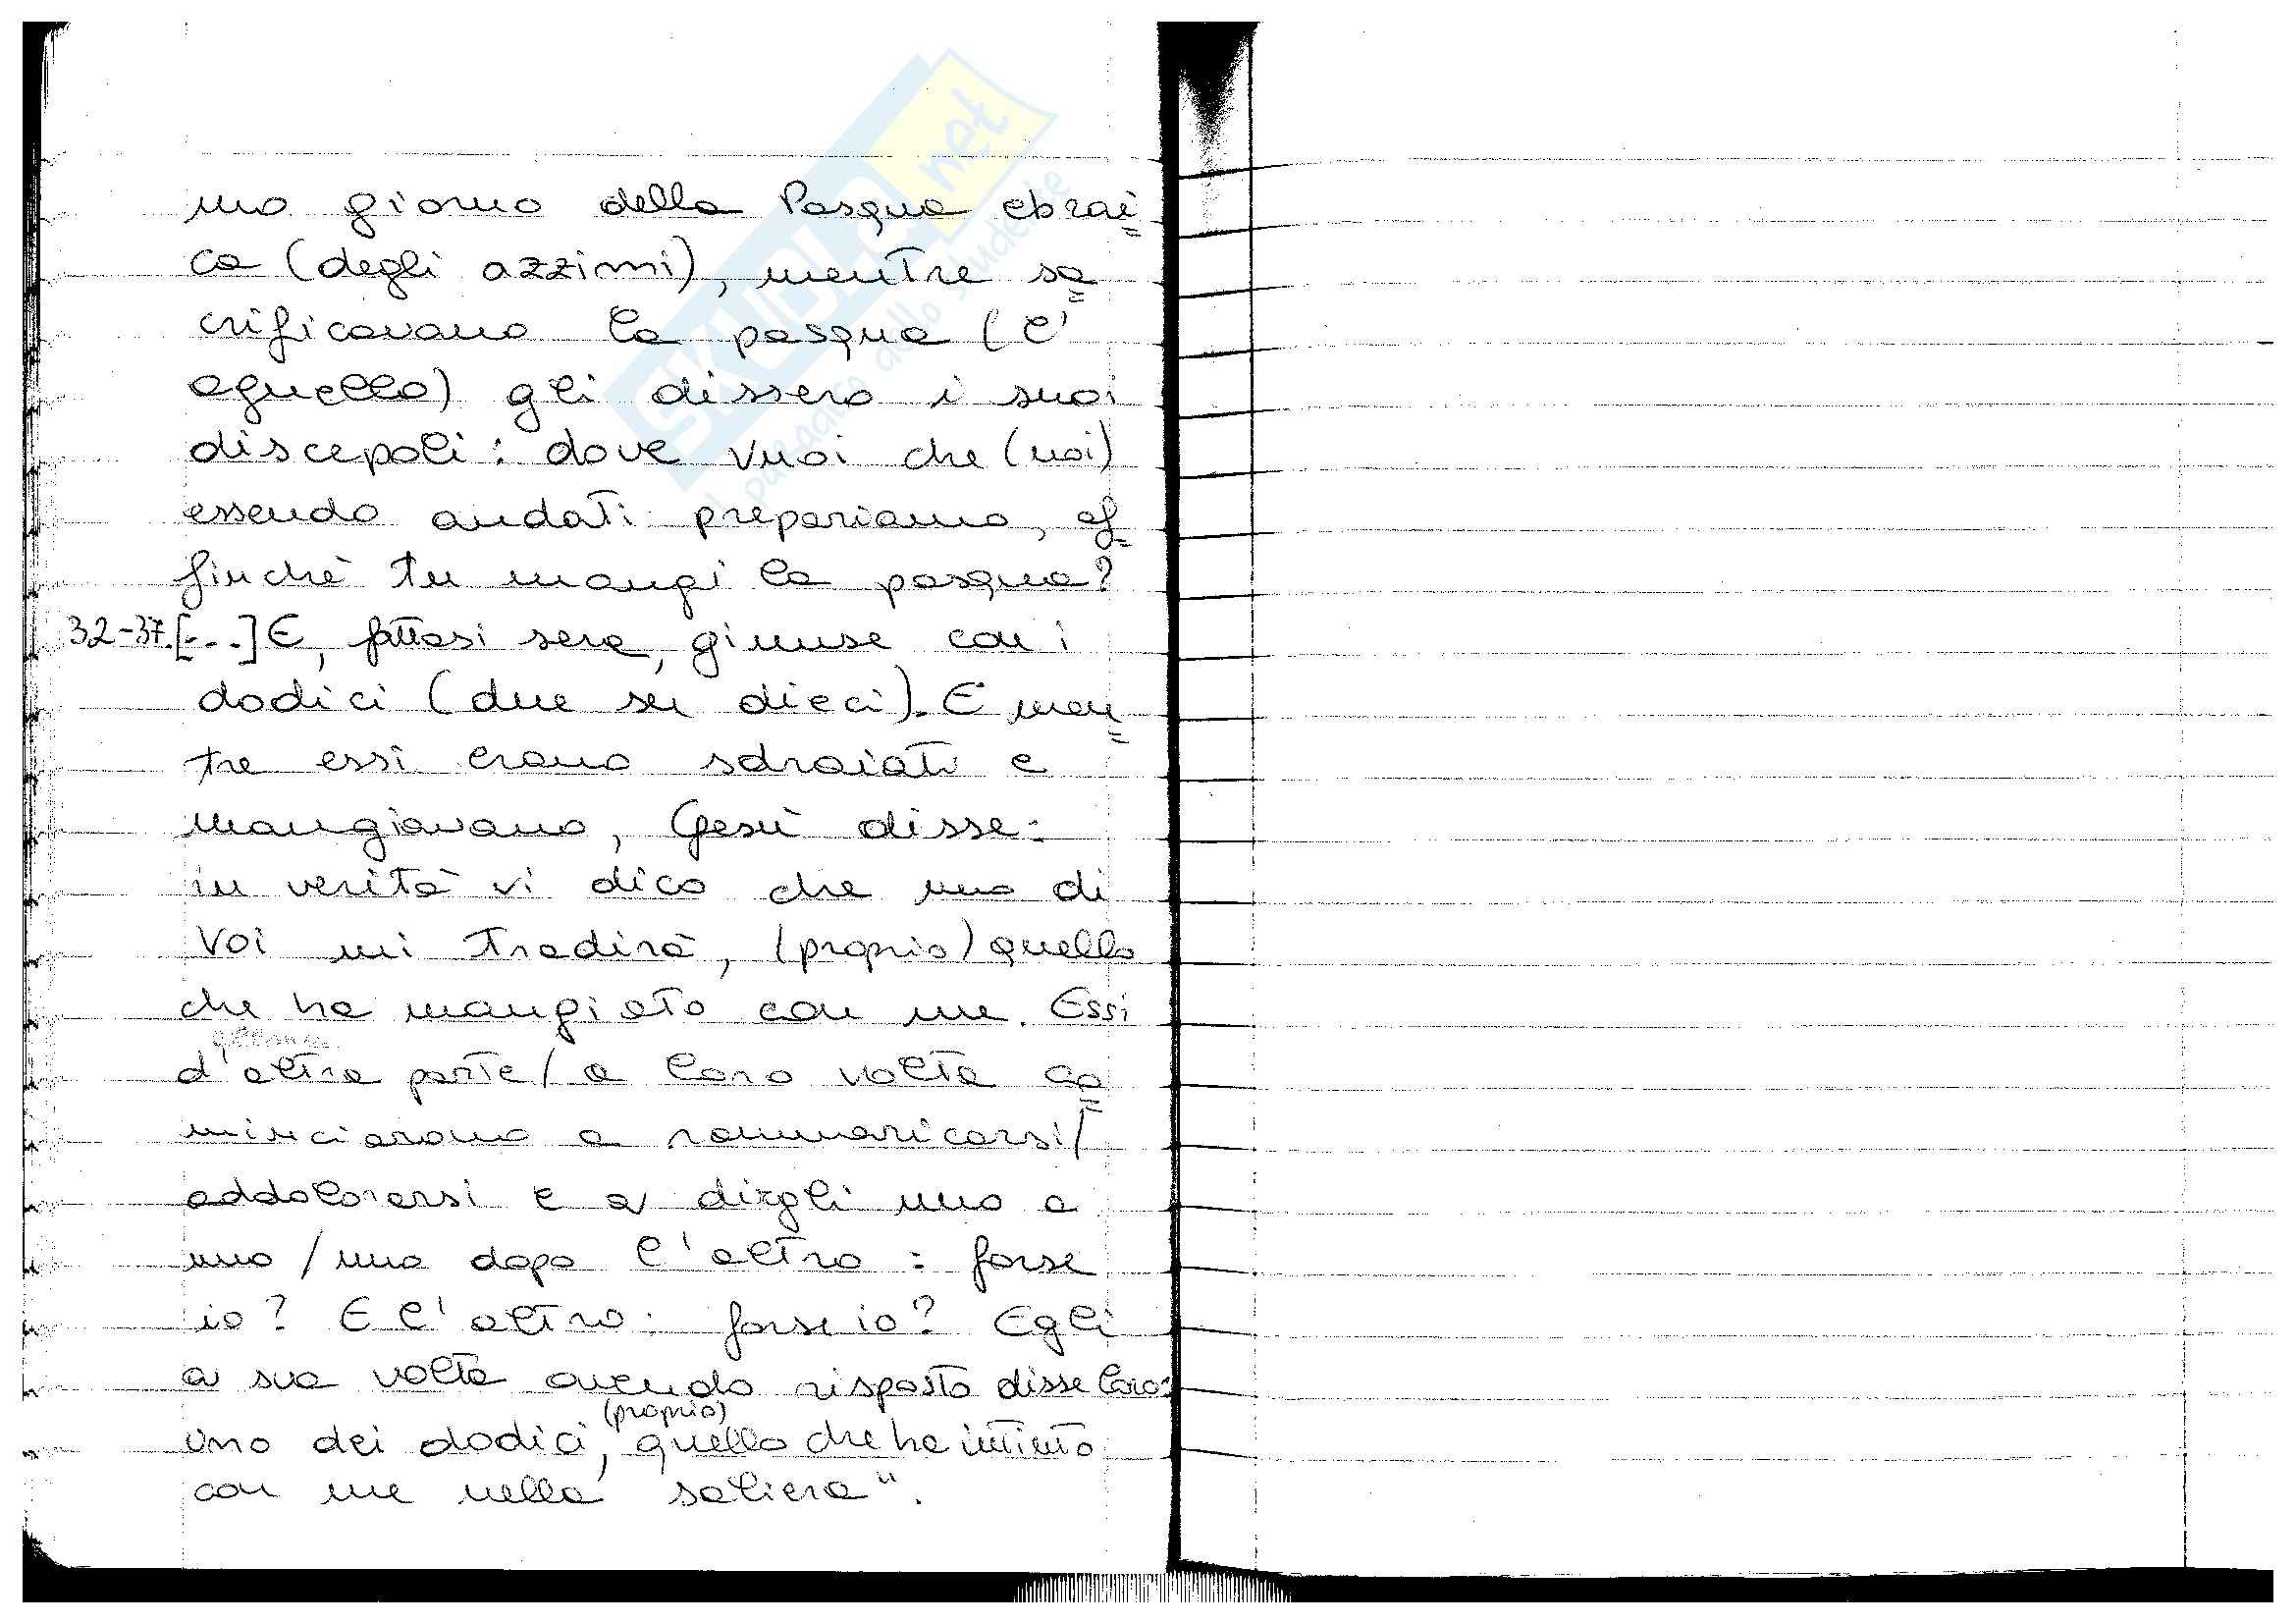 mo giorno della Pasqua ebrai=
ca (degli azzimi), mentre sa=
crificavano la pasqua (l'
agnello) gli dissero i suoi
discepoli: dove vuoi che (noi)
essendo andati prepariamo, af=
finchè tu mangi la pasqua?
32-37.[...] E, fattasi sera, giunse con i
dodici (due su dieci). E men=
tre essi erano sdraiati e
mangiavano, Gesù disse:
in verità vi dico che uno di
voi mi tradirà, (proprio) quello
che ha mangiato con me. Essi
d'altra parte/a loro volta co=
minciarono a rammaricarsi/
addolorarsi e a dirgli uno a
uno/uno dopo l'altro: forse
io? E l'altro: forse io? Egli
a sua volta avendo risposto disse loro:
uno dei dodici, (proprio) quello che ha intinto
con me nella saliera".
SKUOLA.net
Il paradiso dello studente